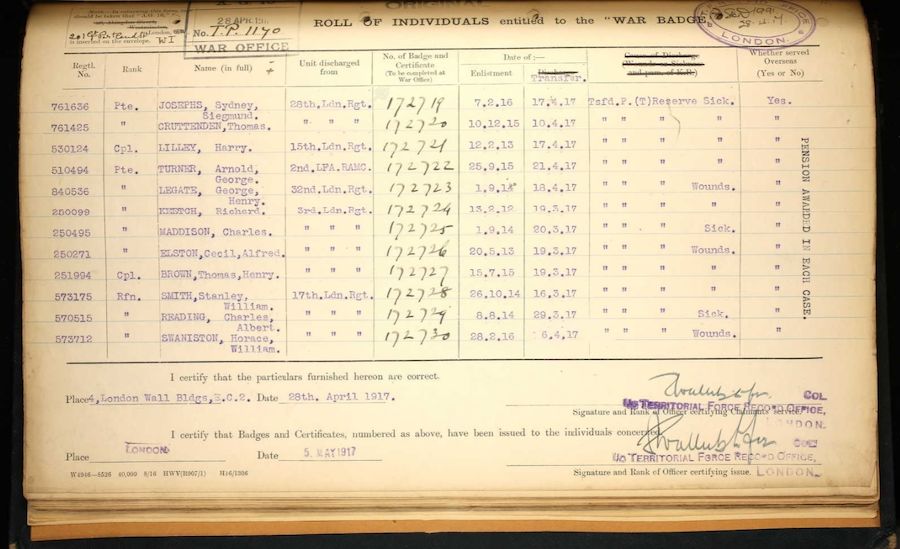 ORIGINAL
28 APR 191
ROLL OF INDIVIDUALS entitled to the "WAR BADGE
No. T.P. 1170
WAR OFFICE
is inserted on the envelope. W1
LONDON.
Regtl. No. Rank Name (in full) Unit discharged from No. of Badge and Certificate (To be completed at War Office) Date of :— Enlistment Discharge Transfer. Cause of Discharge Whether served Overseas (Yes or No)
761636 Pte. JOSEPHS, Sydney, Siegmund. 28th.Ldn.Rgt. 172719 7.2.16 17.4.17 Tsfd.P.(T)Reserve Sick. Yes.
761425 " CRUTTENDEN,Thomas. " " " 172720 10.12.15 10.4.17 " " " " "
530124 Cpl. LILLEY, Harry. 15th.Ldn.Rgt. 172721 12.2.13 17.4.17 " " " " "
510494 Pte. TURNER, Arnold, George. 2nd.LFA.RAMC. 172722 25.9.15 21.4.17 " " " " "
840536 " LEGATE, George, Henry. 32nd.Ldn.Rgt. 172723 1.9.14 18.4.17 " " " Wounds. "
250099 " KEETCH, Richard. 3rd.Ldn.Rgt. 172724 13.2.12 19.3.17 " " " " "
250495 " MADDISON, Charles. " " " 172725 1.9.14 20.3.17 " " " Sick. "
250271 " ELSTON,Cecil,Alfred. " " " 172726 20.5.13 19.3.17 " " " Wounds. "
251994 Cpl. BROWN,Thomas,Henry. " " " 172727 15.7.15 19.3.17 " " " " "
573175 Rfn. SMITH,Stanley, William. 17th.Ldn.Rgt. 172728 26.10.14 16.3.17 " " " " "
570515 " READING, Charles, Albert. " " " 172729 8.8.14 29.3.17 " " " Sick. "
573712 " SWANISTON, Horace, William. " " " 172730 28.2.16 6.4.17 " " " Wounds. "
PENSION AWARDED IN EACH CASE.
I certify that the particulars furnished hereon are correct.
Place 4,London Wall Bldgs,E.C.2. Date 28th. April 1917.
COL
I/c TERRITORIAL FORCE RECORD OFFICE,
Signature and Rank of Officer certifying Claimants' service.
LONDON.
I certify that Badges and Certificates, numbered as above, have been issued to the individuals concerned.
Place LONDON Date 5. MAY 1917
COL
I/c TERRITORIAL FORCE RECORD OFFICE,
Signature and Rank of Officer certifying issue. LONDON.
W4946—8526 40,000 8/16 HWV(R907/1) M16/1306